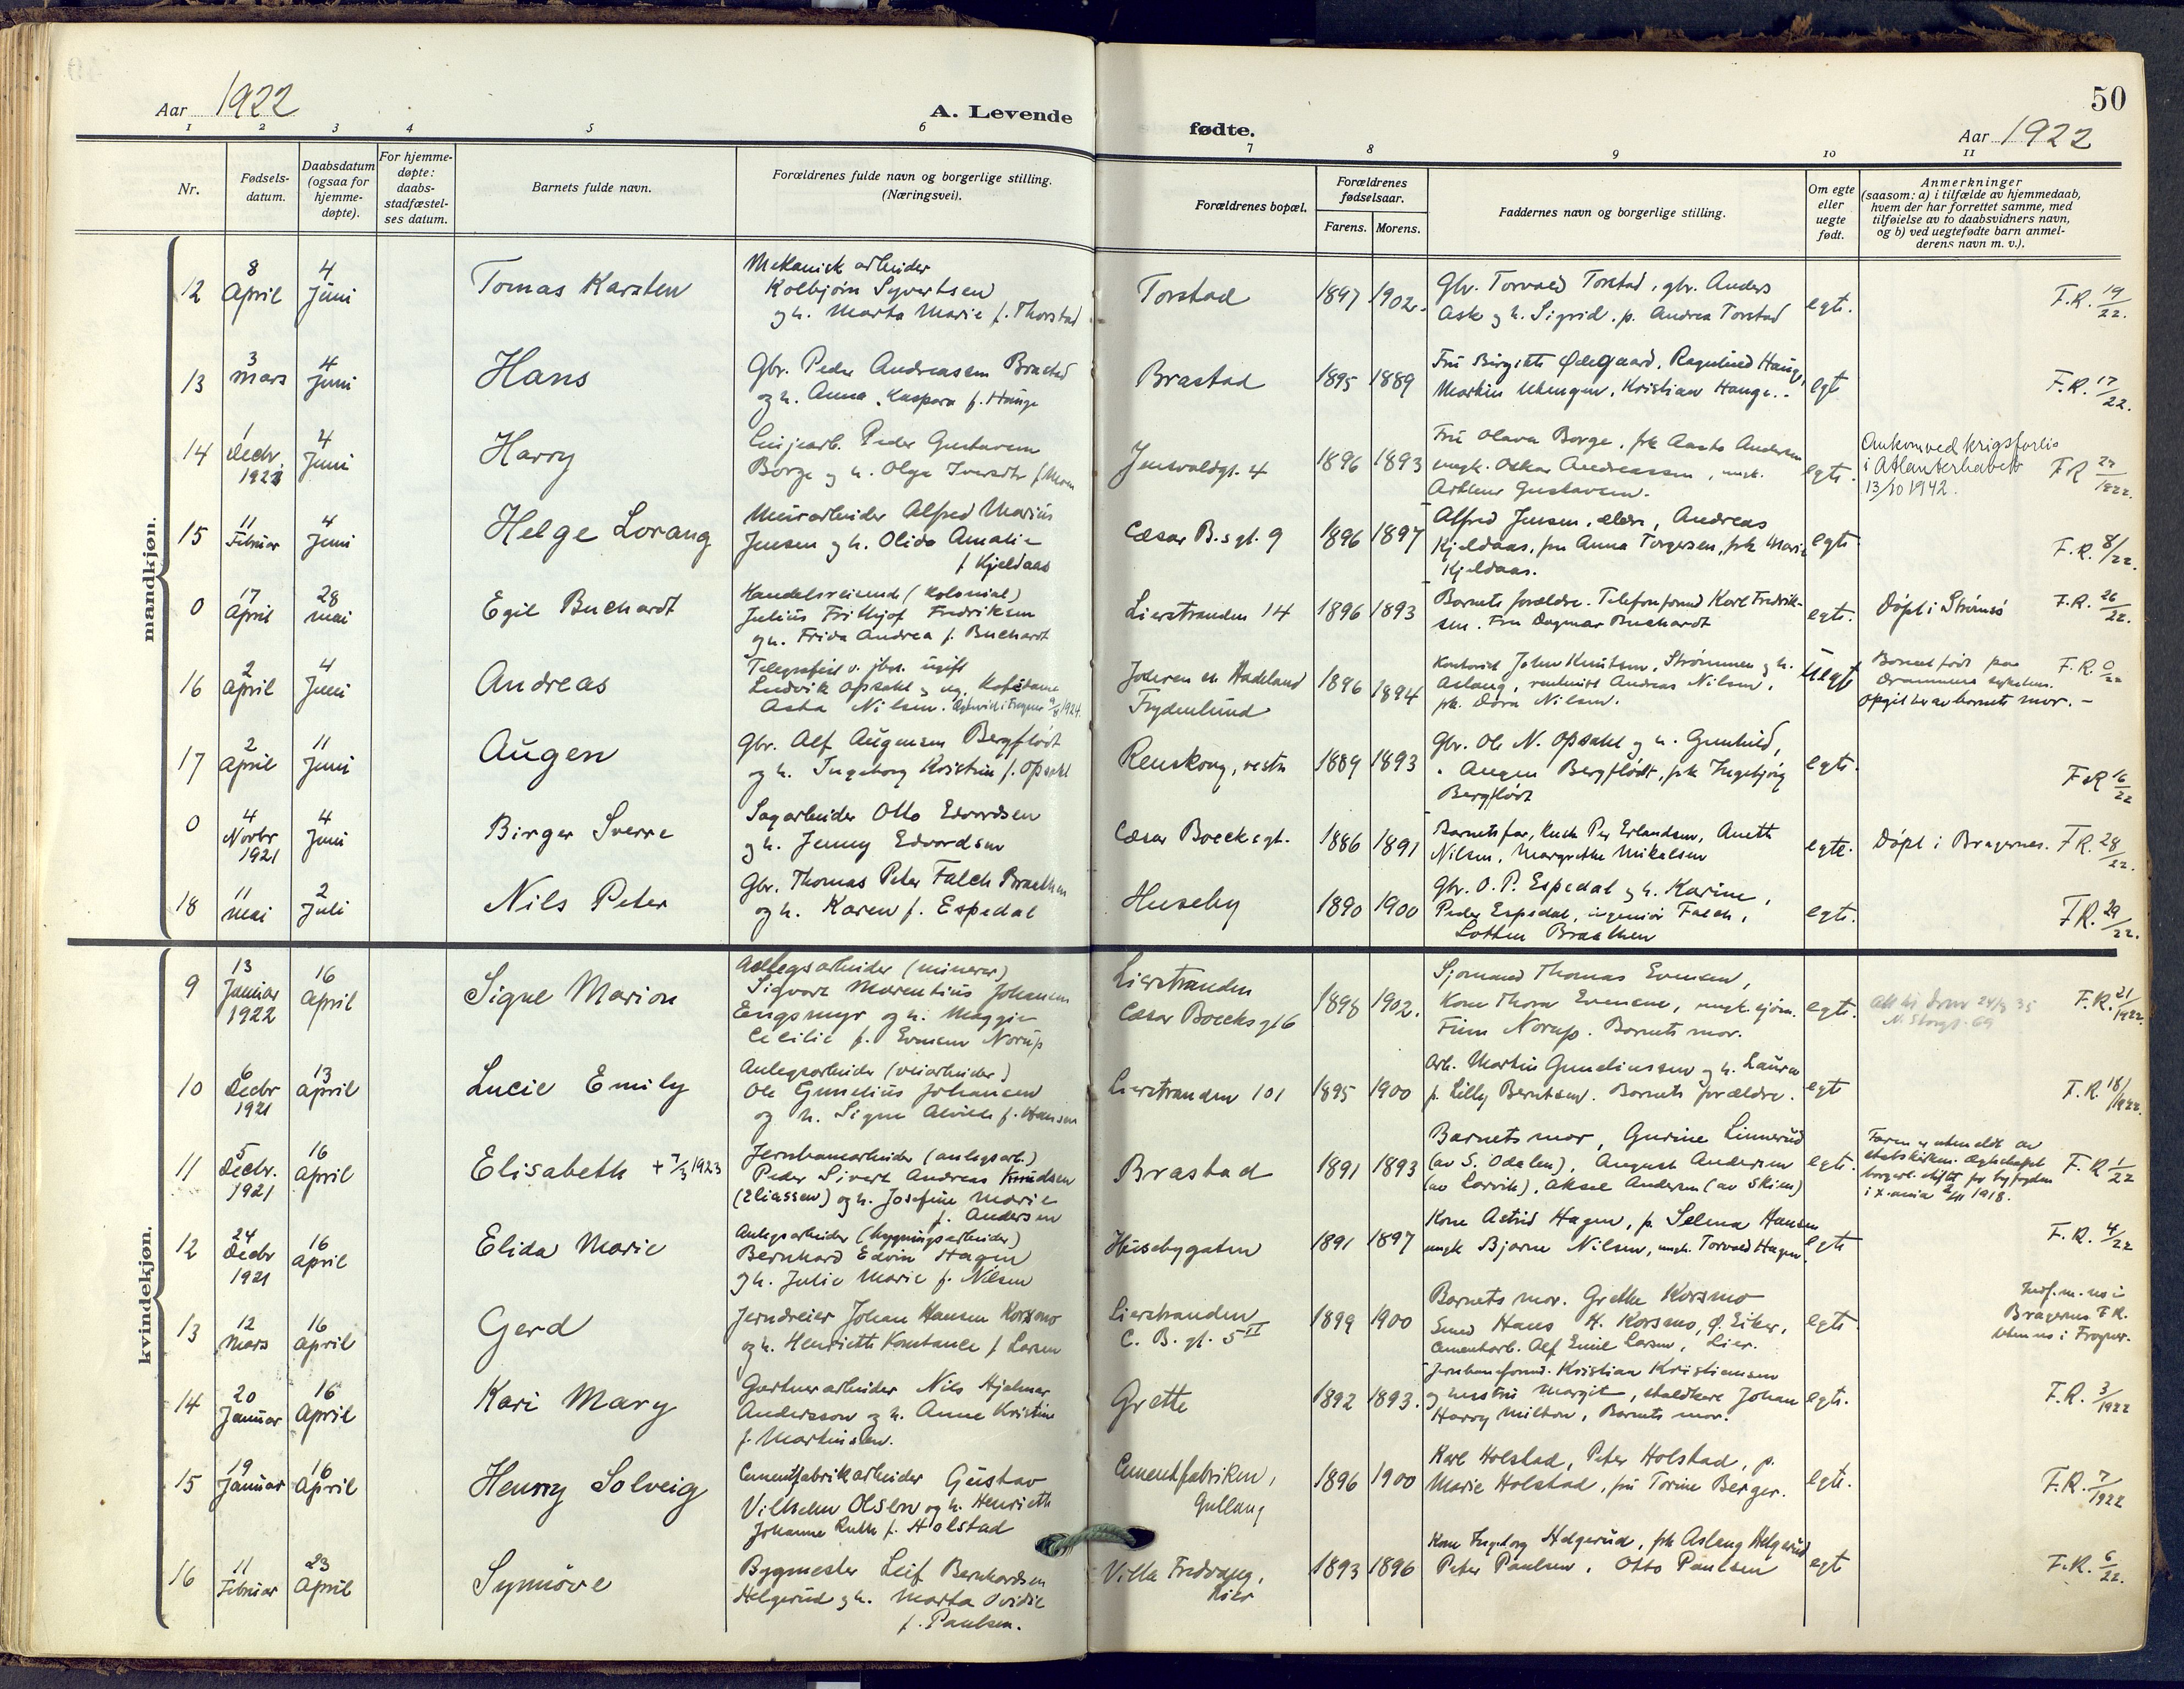 50
Aar 1922
A. Levende
fødte.
Aar 1922
1 2 3 4 5 6 7 8 9 10 11
Nr.
Fødsels-
datum.
Daabsdatum
(ogsaa for
hjemme-
døpte).
For hjemme-
døpte:
daabs-
stadfæstel-
ses datum.
Barnets fulde navn.
Forældrenes fulde navn og borgerlige stilling.
(Næringsvei).
Forældrenes bopæl.
Forældrenes
fødselsaar.
Farens. Morens.
Faddernes navn og borgerlige stilling.
Om egte
eller
uegte
født.
Anmerkninger
(saasom: a) i tilfælde av hjemmedaab,
hvem der har forrettet samme, med
tilføielse av to daabsvidners navn,
og b) ved uegtefødte barn anmel-
derens navn m. v.).
mandkjøn.
12
8
April
4
Juni
Tomas Karsten
Mekanisk arbeider
Kolbjørn Syvertsen
og h. Marta Marie f. Thorstad
Torstad
1897 1902.
Gbr. Torvald Torstad, gbr. Anders
Ask og h. Sigrid, p. Andrea Torstad
egte.
F.R. 19/22.
13
3
mars
4
Juni
Hans
Gbr. Peder Andreassen Brastad
og h. Anna Kaspara f. Hauge
Brastad
1895 1889
Fru Birgitte Ødegaard, Ragnhild Hauge,
Martin Uhengen, Kristian Hauge.
egt
F.R. 17/22.
14
1
Decbr.
1921
4
Juni
Harry
Linjearb. Peder Gustavsen
Borge og h. Olga Iversdtr f. Moen
Jensvoldgt. 4
1896 1893
Fru Olava Borge, frk Aasta Andersen
ungk. Oskar Andreassen, ungk.
Arthur Gustavsen.
egte.
Omkom ved krigsforlis
i Atlanterhavet
13/10 1942.
F.R. 27/1922.
15
11
Februar
4
Juni
Helge Lorang
Murarbeider Alfred Marius
Jensen og h. Olida Amalie
f Kjeldaas
Cæsar B.s gt. 9
1896 1897
Alfred Jensen, ældre, Andreas
Kjeldaas, fru Anna Torgersen, frk Marie
Kjeldaas.
egte
F.R. 8/22.
0
17
April
28
mai
Egil Buchardt
Handelsreisende (kolonial)
Julius Frithjof Fredriksen
og h. Frida Andrea f. Buchardt
Lierstranden 14
1896 1893
Barnets forældre. Telefonformd Karl Fredrik-
sen. Fru Dagmar Buchardt
egte.
Døpt i Strømsø
F.R. 26/22.
16
2
April
4
Juni
Andreas
Telegrafist v. jbn. ugift
Ludvik Opsahl og ug. Kafédame
Asta Nilsen.
Jaderen st. Hadeland
Frydenlund
1896 1894
Kontorist John Knutsen, Strømmen og h.
Aslaug, rentenist Andreas Nilsen,
frk. Dora Nilsen.
Uegt
Barnet født paa
Drammens sykehus.
Opgit her av barnets mor. -
F.R. 0/22
17
2
April
11
Juni
Augen
Gbr. Alf Augensen Bergflødt
og h. Ingeborg Kristine f. Opsahl
Renskoug, vestre
1889 1893
Gbr. Ole N. Opsahl og h. Gunhild,
" Augen Bergflødt, frk Ingebjørg
Bergflødt
egte.
F.R 16/22
0
4
Novbr
1921
4
Juni
Birger Sverre
Sagarbeider Otto Edvardsen
og h. Jenny Edvardsen
Cæsar Boecksgt.
1886 1891
Barnets far, Kusk Per Erlandsen, Anett
Nilsen, Margrethe Mikalsen
egte.
Døpt i Bragernes.
F.R. 28/22.
18
11
mai
2
Juli
Nils Peter
Gbr. Thomas Peter Falch Braathen
og h. Karen f. Espedal
Huseby
1890 1900
Gbr. O. P. Espedal og h. Karine,
Peder Espedal, ingeniør Falch,
Lotten Braathen
egte.
F.R. 29/22.
kvindekjøn.
9
13
Januar
1922
16
April
Signe Marion
Anlegsarbeider (minerer)
Sigvart Marentius Johansen
Engsmyr og h. Maggie
Cecilie f. Evensen Norup
Lierstranden
Cæsar Boecks gt 6
1898 1902.
Sjømand Thomas Evensen,
Kone Thora Evensen, ungk. sjøm.
Finn Norup. Barnets mor.
egte.
F.R. 21/1922.
10
6
Decbr
1921
13
April
Lucie Emily
Anlegsarbeider (veiarbeider)
Ole Gunelius Johansen
og h. Signe Alvilde f. Hansen
Lierstranden 101
1895 1900
Arb. Martin Guneliussen og h. Laura
p. Lilly Berntsen. Barnets forældre.
egt
F.R. 18/1922.
11
5
Decbr.
1921
16
April
Elisabeth + 7/3 1923
Jernbanearbeider (anlegsarb.)
Peder Sivert Andreas Knudsen
(Eliassen) og h. Josefine Marie
f. Andersen
Brastad
1891 1893
Barnets mor, Gurine Linnerud
(av S. Odalen), August Andersen
(av Larvik), Aksel Andersen (av Skien)
egte.
Faren er utmeldt av
statskirken. Egteskapet
borgerl. stiftet for byfogden
i X.ania 2/11 1918.
F.R 1/22
12
24
Decbr
1921
16
April
Elida Marie
Anlegsarbeider (bygningsarbeider)
Bernhard Edvin Hagen
og h. Julie Marie f. Nilsen
Husebygaten
1891 1897
Kone Astrid Hagen, p. Selma Hansen
ungk Bjarne Nilsen, ungk. Torvald Hagen
egte
F.R. 4/22
13
12
Mars
16
April
Gerd
Jerndreier Johan Hansen Korsmo
og h. Henriette Konstance f Larsen
Lierstranden
C. B. gt. 5 II
1899 1900
Barnets mor. Grethe Korsmo
Smed Hans H. Korsmo, Ø. Eiker,
Cementarb. Alf Emil Larsen, Lier.
egte
Indf. m. no i
Bragernes F.R.
14
20
Januar
16
April
Kari Mary
Gartnerarbeider Nils Hjalmar
Andersson og h. Anne Kristine
f. Martinsen.
Grette
1892 1893.
Jernbaneformd. Kristian Kristiansen
og hustru Margit, staldkarl Johan
Harry Milton, Barnets mor.
egte.
F.R. 3/1922
15
19
Januar
16
April
Henny Solveig
Cementfabrikarbeider Gustav
Vilhelm Olsen og h. Henriette
Johanne Ruth f. Holstad
Cementfabriken,
Gullaug
1896 1900
Karl Holstad, Peter Holstad, p.
Marie Holstad, fru Torine Berger.
egte.
F.R. 7/1922
16
11
Februar
23
April
Synnöve
Bygmester Leif Bernhardsen
Helgerud og h. Marta Ovidie
f. Paulsen.
Villa Fredvang,
Lier
1893 1896
Kone Ingeborg Helgerud, frk Aslaug Helgerud
Peter Paulsen, Otto Paulsen
egt
F.R. 6/22.